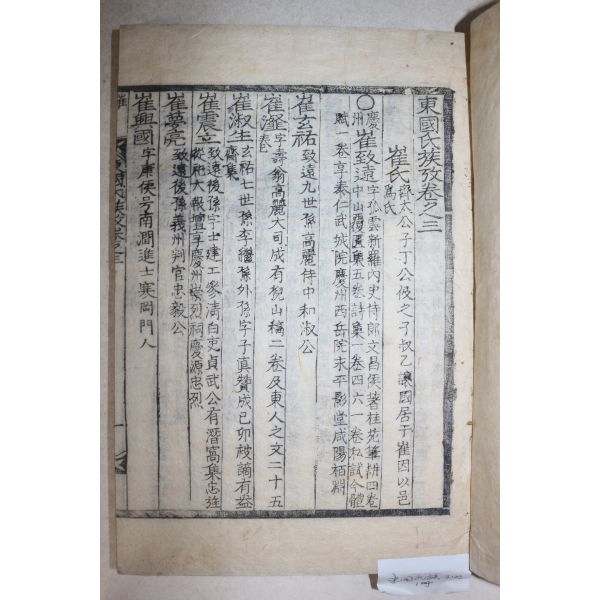 東國氏族攷卷之三
崔氏 齊太公子丁公伋之子叔乙讓國居于崔因以邑
爲氏
○慶州 崔致遠 字孤雲新羅內史侍郞文昌侯著桂苑筆耕四卷
中山覆簣集五卷詩集一卷四六一卷私試今體
賦一卷享泰仁武城院慶州西岳院永平影堂咸陽栢淵
崔玄祐 致遠九世孫高麗侍中和淑公
崔瀣 字壽翁高麗大司成有猊山稿二卷及東人之文二十五
卷
崔淑生 玄祐七世孫李繼孫外孫字子眞贊成己卯被謫有益
齋集
崔震立 致遠後孫字士建工參淸白吏貞武公有潛窩集忠
從祀大報壇享慶州崇烈祠慶源忠烈
崔夢亮 致遠後孫義州判官忠毅公
崔興國 字康侯号南澗進士寒岡門人
崔